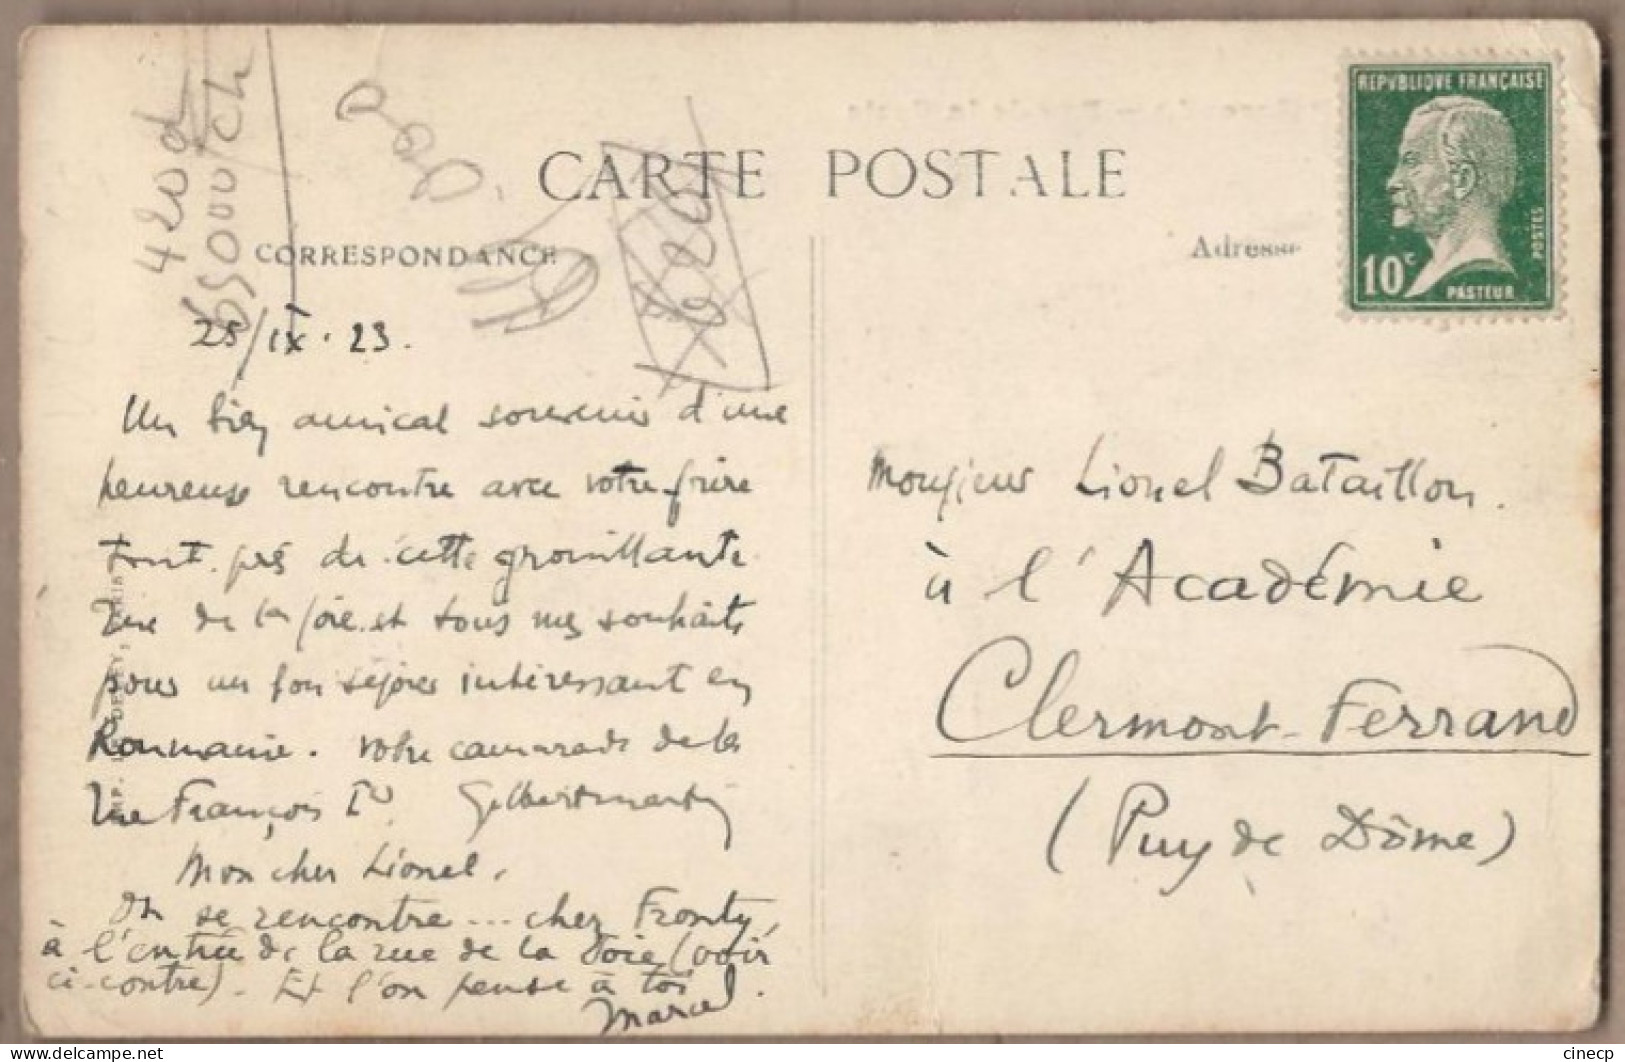 420d
65000/ch
CARTE POSTALE
CORRESPONDANCE
Adresse
REPVBLIQVE FRANÇAISE
POSTES
10c
PASTEUR
25/IX.23.
Un bien amical souvenir d'une
heureuse rencontre avec votre frère
tout près de cette grouillante
Rue de la Joie et tous mes souhaits
pour un bon séjour intéressant en
Roumanie. Votre camarade de la
rue François Ier. Gilbert Martin
Mon cher Lionel,
On se rencontre... chez Fronty,
à l'entrée de la rue de la Joie (voir
ci-contre). Et l'on pense à toi.
Marcel
Monsieur Lionel Bataillon.
à l'Académie
Clermont-Ferrand
(Puy de Dôme)
IMP.
cinecp